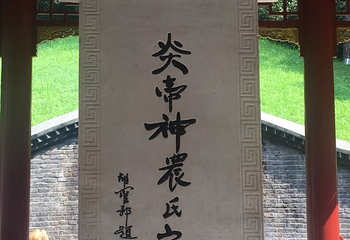 炎帝神農氏
胡耀邦題